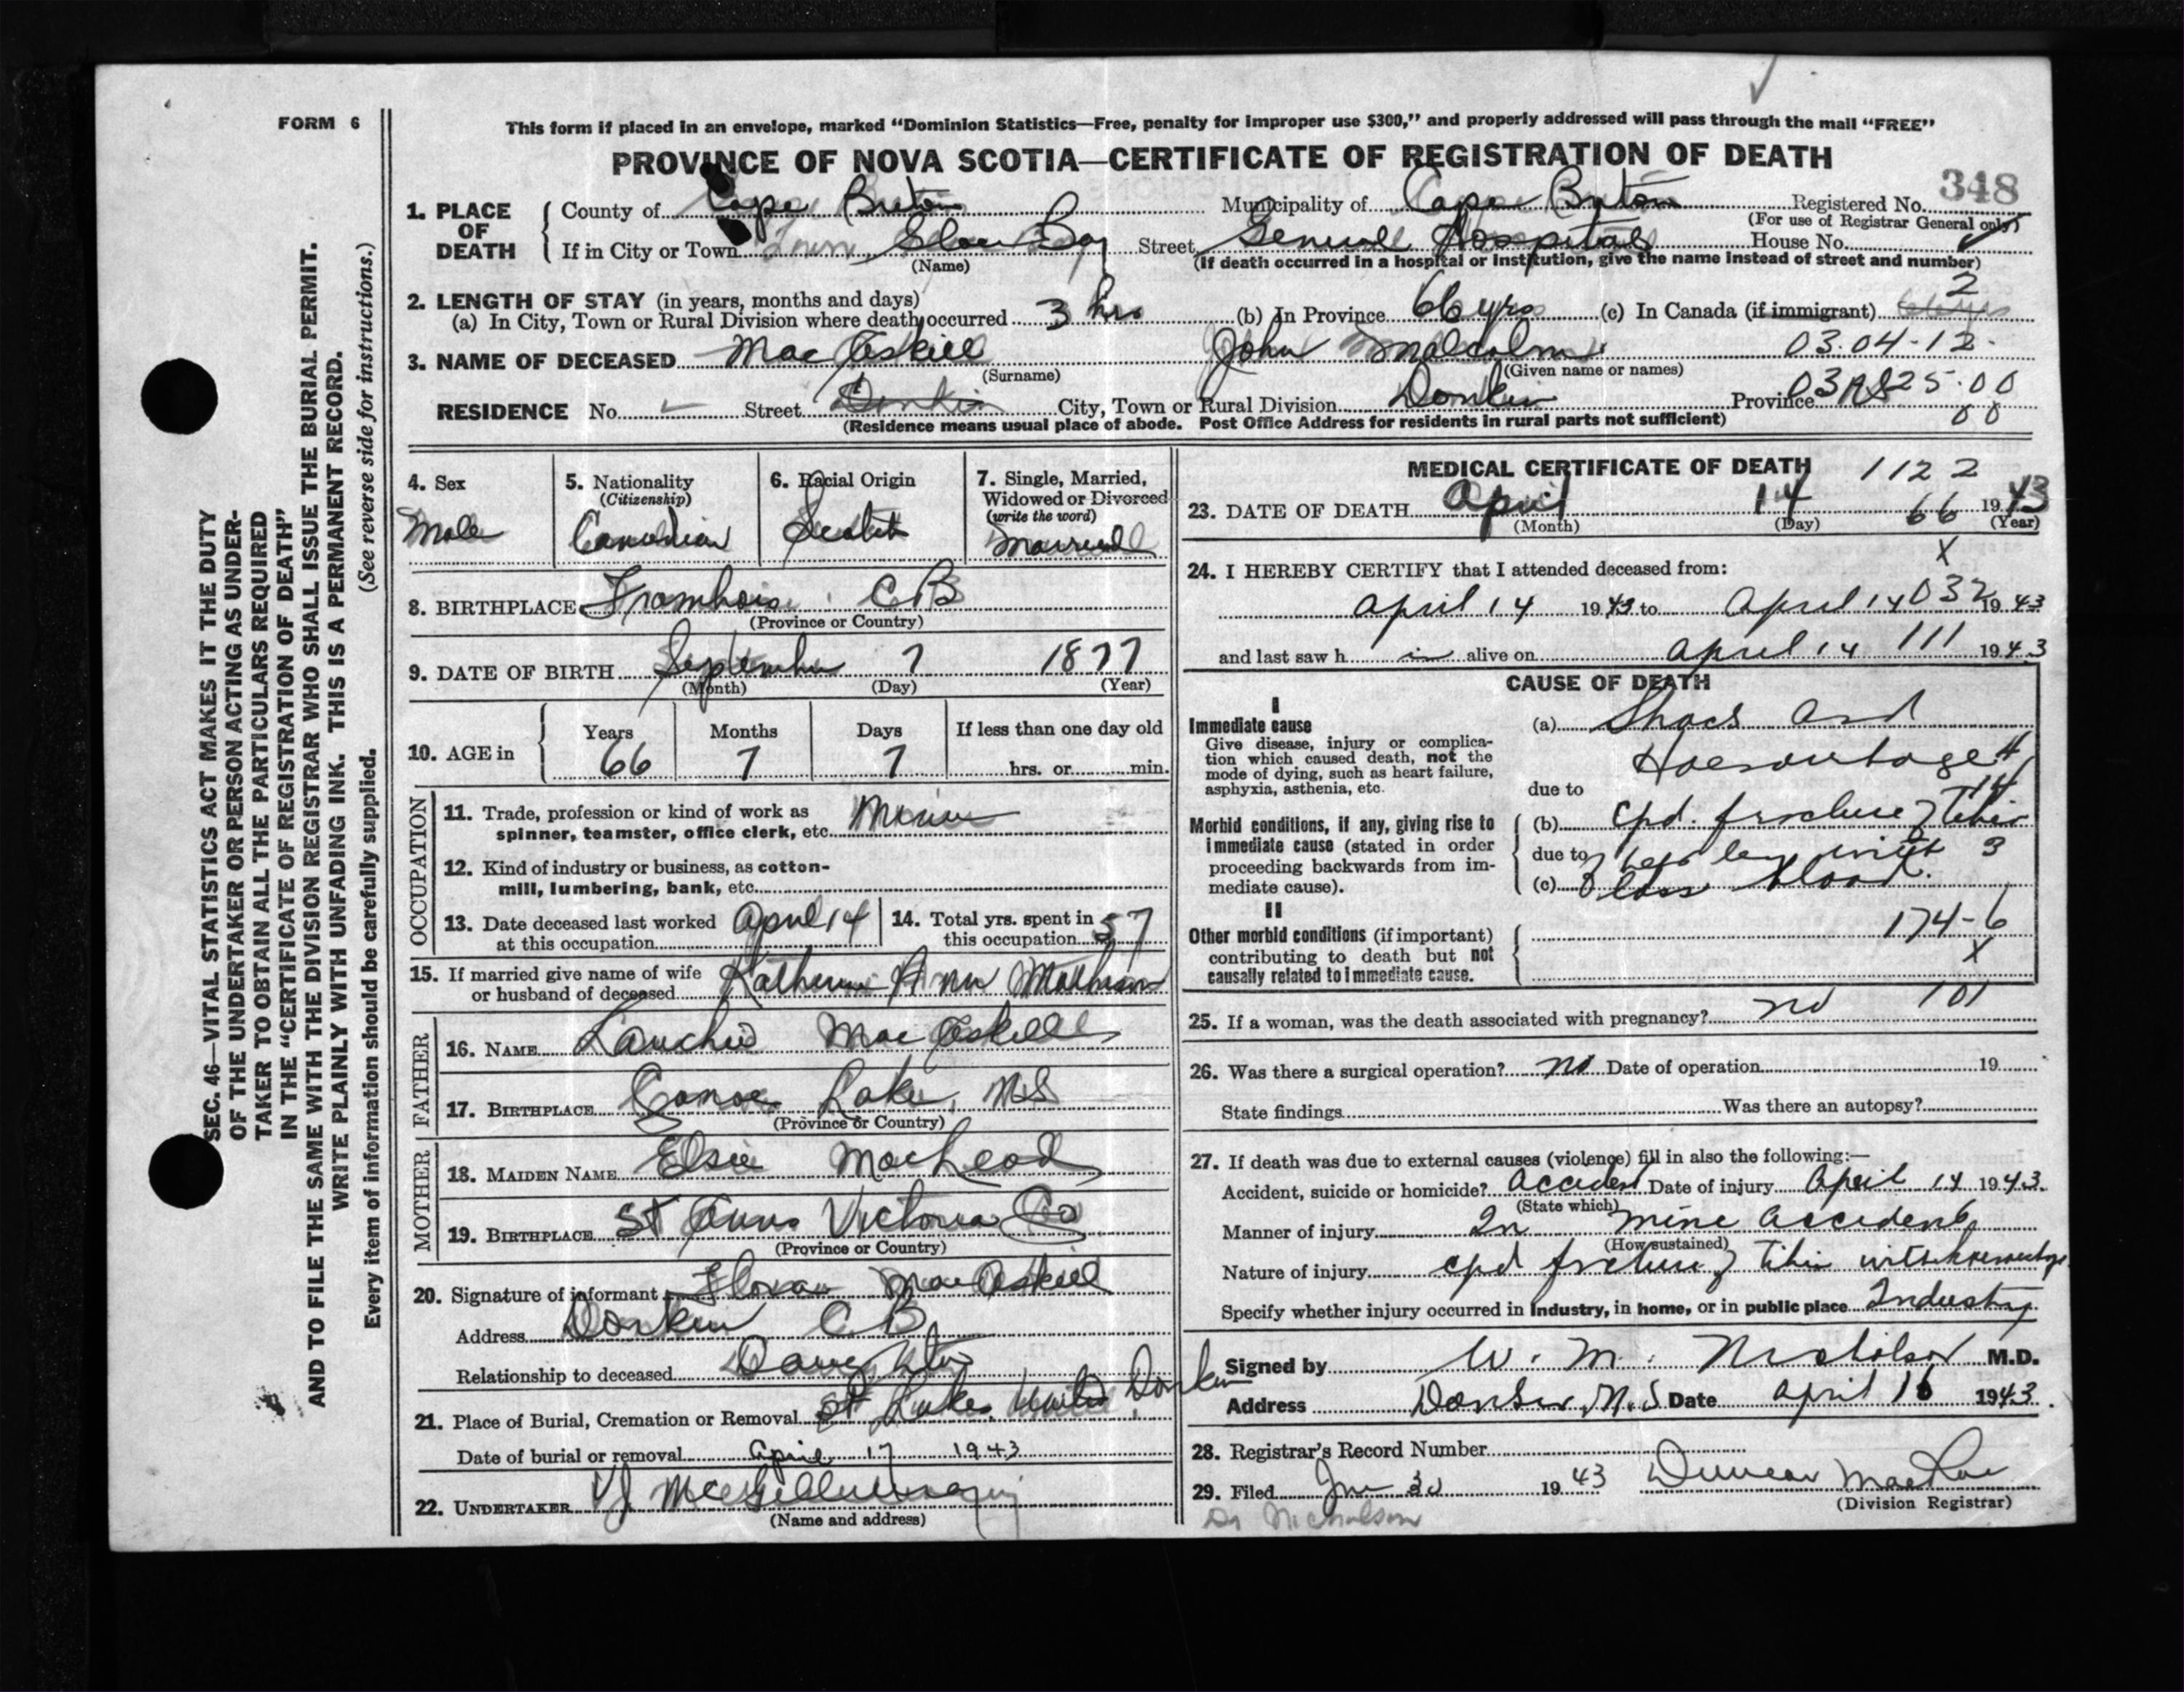 FORM 6
This form if placed in an envelope, marked "Dominion Statistics—Free, penalty for improper use $300," and properly addressed will pass through the mail "FREE"
PROVINCE OF NOVA SCOTIA—CERTIFICATE OF REGISTRATION OF DEATH
348
1. PLACE OF DEATH
County of Cape Breton Municipality of Cape Breton Registered No.
(For use of Registrar General only)
If in City or Town Town Glace Bay Street General Hospital House No.
(Name) (If death occurred in a hospital or institution, give the name instead of street and number)
2. LENGTH OF STAY (in years, months and days) 2
(a) In City, Town or Rural Division where death occurred 3 hrs (b) In Province 66 yrs (c) In Canada (if immigrant)
3. NAME OF DECEASED MacAskill John Malcolm 03.04-12-
(Surname) (Given name or names)
RESIDENCE No. Street Donkin City, Town or Rural Division Donkin Province NS 03 25.00
00
(Residence means usual place of abode. Post Office Address for residents in rural parts not sufficient)
SEC. 46—VITAL STATISTICS ACT MAKES IT THE DUTY
OF THE UNDERTAKER OR PERSON ACTING AS UNDER-
TAKER TO OBTAIN ALL THE PARTICULARS REQUIRED
IN THE "CERTIFICATE OF REGISTRATION OF DEATH"
AND TO FILE THE SAME WITH THE DIVISION REGISTRAR WHO SHALL ISSUE THE BURIAL PERMIT.
WRITE PLAINLY WITH UNFADING INK. THIS IS A PERMANENT RECORD.
Every item of information should be carefully supplied. (See reverse side for instructions.)
4. Sex
Male
5. Nationality
(Citizenship)
Canadian
6. Racial Origin
Scotch
7. Single, Married,
Widowed or Divorced
(write the word)
Married
8. BIRTHPLACE Framboise C B
(Province or Country)
9. DATE OF BIRTH September 7 1877
(Month) (Day) (Year)
10. AGE in
Years Months Days If less than one day old
66 7 7 hrs. or min.
OCCUPATION
11. Trade, profession or kind of work as
spinner, teamster, office clerk, etc. Miner
12. Kind of industry or business, as cotton-
mill, lumbering, bank, etc.
13. Date deceased last worked
at this occupation April 14
14. Total yrs. spent in
this occupation 57
15. If married give name of wife
or husband of deceased Katherine Ann Matheson
FATHER
16. NAME Lauchie MacAskill
17. BIRTHPLACE Canoe Lake, N S
(Province or Country)
MOTHER
18. MAIDEN NAME Elsie MacLeod
19. BIRTHPLACE St Anns Victoria Co
(Province or Country)
20. Signature of informant MacAskill
Address Donkin C B
Relationship to deceased Daughter
21. Place of Burial, Cremation or Removal St Lukes United Donkin
Date of burial or removal April 17 1943
22. UNDERTAKER
(Name and address)
MEDICAL CERTIFICATE OF DEATH 1122
23. DATE OF DEATH April 14 66 1943
(Month) (Day) (Year)
X
24. I HEREBY CERTIFY that I attended deceased from:
April 14 1943 to April 14 032 1943
and last saw h im alive on April 14 111 1943
CAUSE OF DEATH
I
Immediate cause
Give disease, injury or complica-
tion which caused death, not the
mode of dying, such as heart failure,
asphyxia, asthenia, etc.
(a) Shock and
Haemorrhage 4
14
due to
Morbid conditions, if any, giving rise to
immediate cause (stated in order
proceeding backwards from im-
mediate cause).
(b) cpd. fracture of Tibia
due to of left leg with 3
(c) loss blood.
II
Other morbid conditions (if important)
contributing to death but not
causally related to immediate cause.
174-6
X
101
25. If a woman, was the death associated with pregnancy? no
26. Was there a surgical operation? no Date of operation 19
State findings Was there an autopsy?
27. If death was due to external causes (violence) fill in also the following:—
Accident, suicide or homicide? Accident Date of injury April 14 1943.
(State which)
Manner of injury In mine accident
(How sustained)
Nature of injury cpd fracture of tibia with haemorrhage
Specify whether injury occurred in Industry, in home, or in public place Industry
Signed by W. M. Nicholson M.D.
Address Donkin, N.S. Date April 16 1943.
28. Registrar's Record Number
29. Filed 30 1943 Duncan MacRae
(Division Registrar)
Dr Nicholson